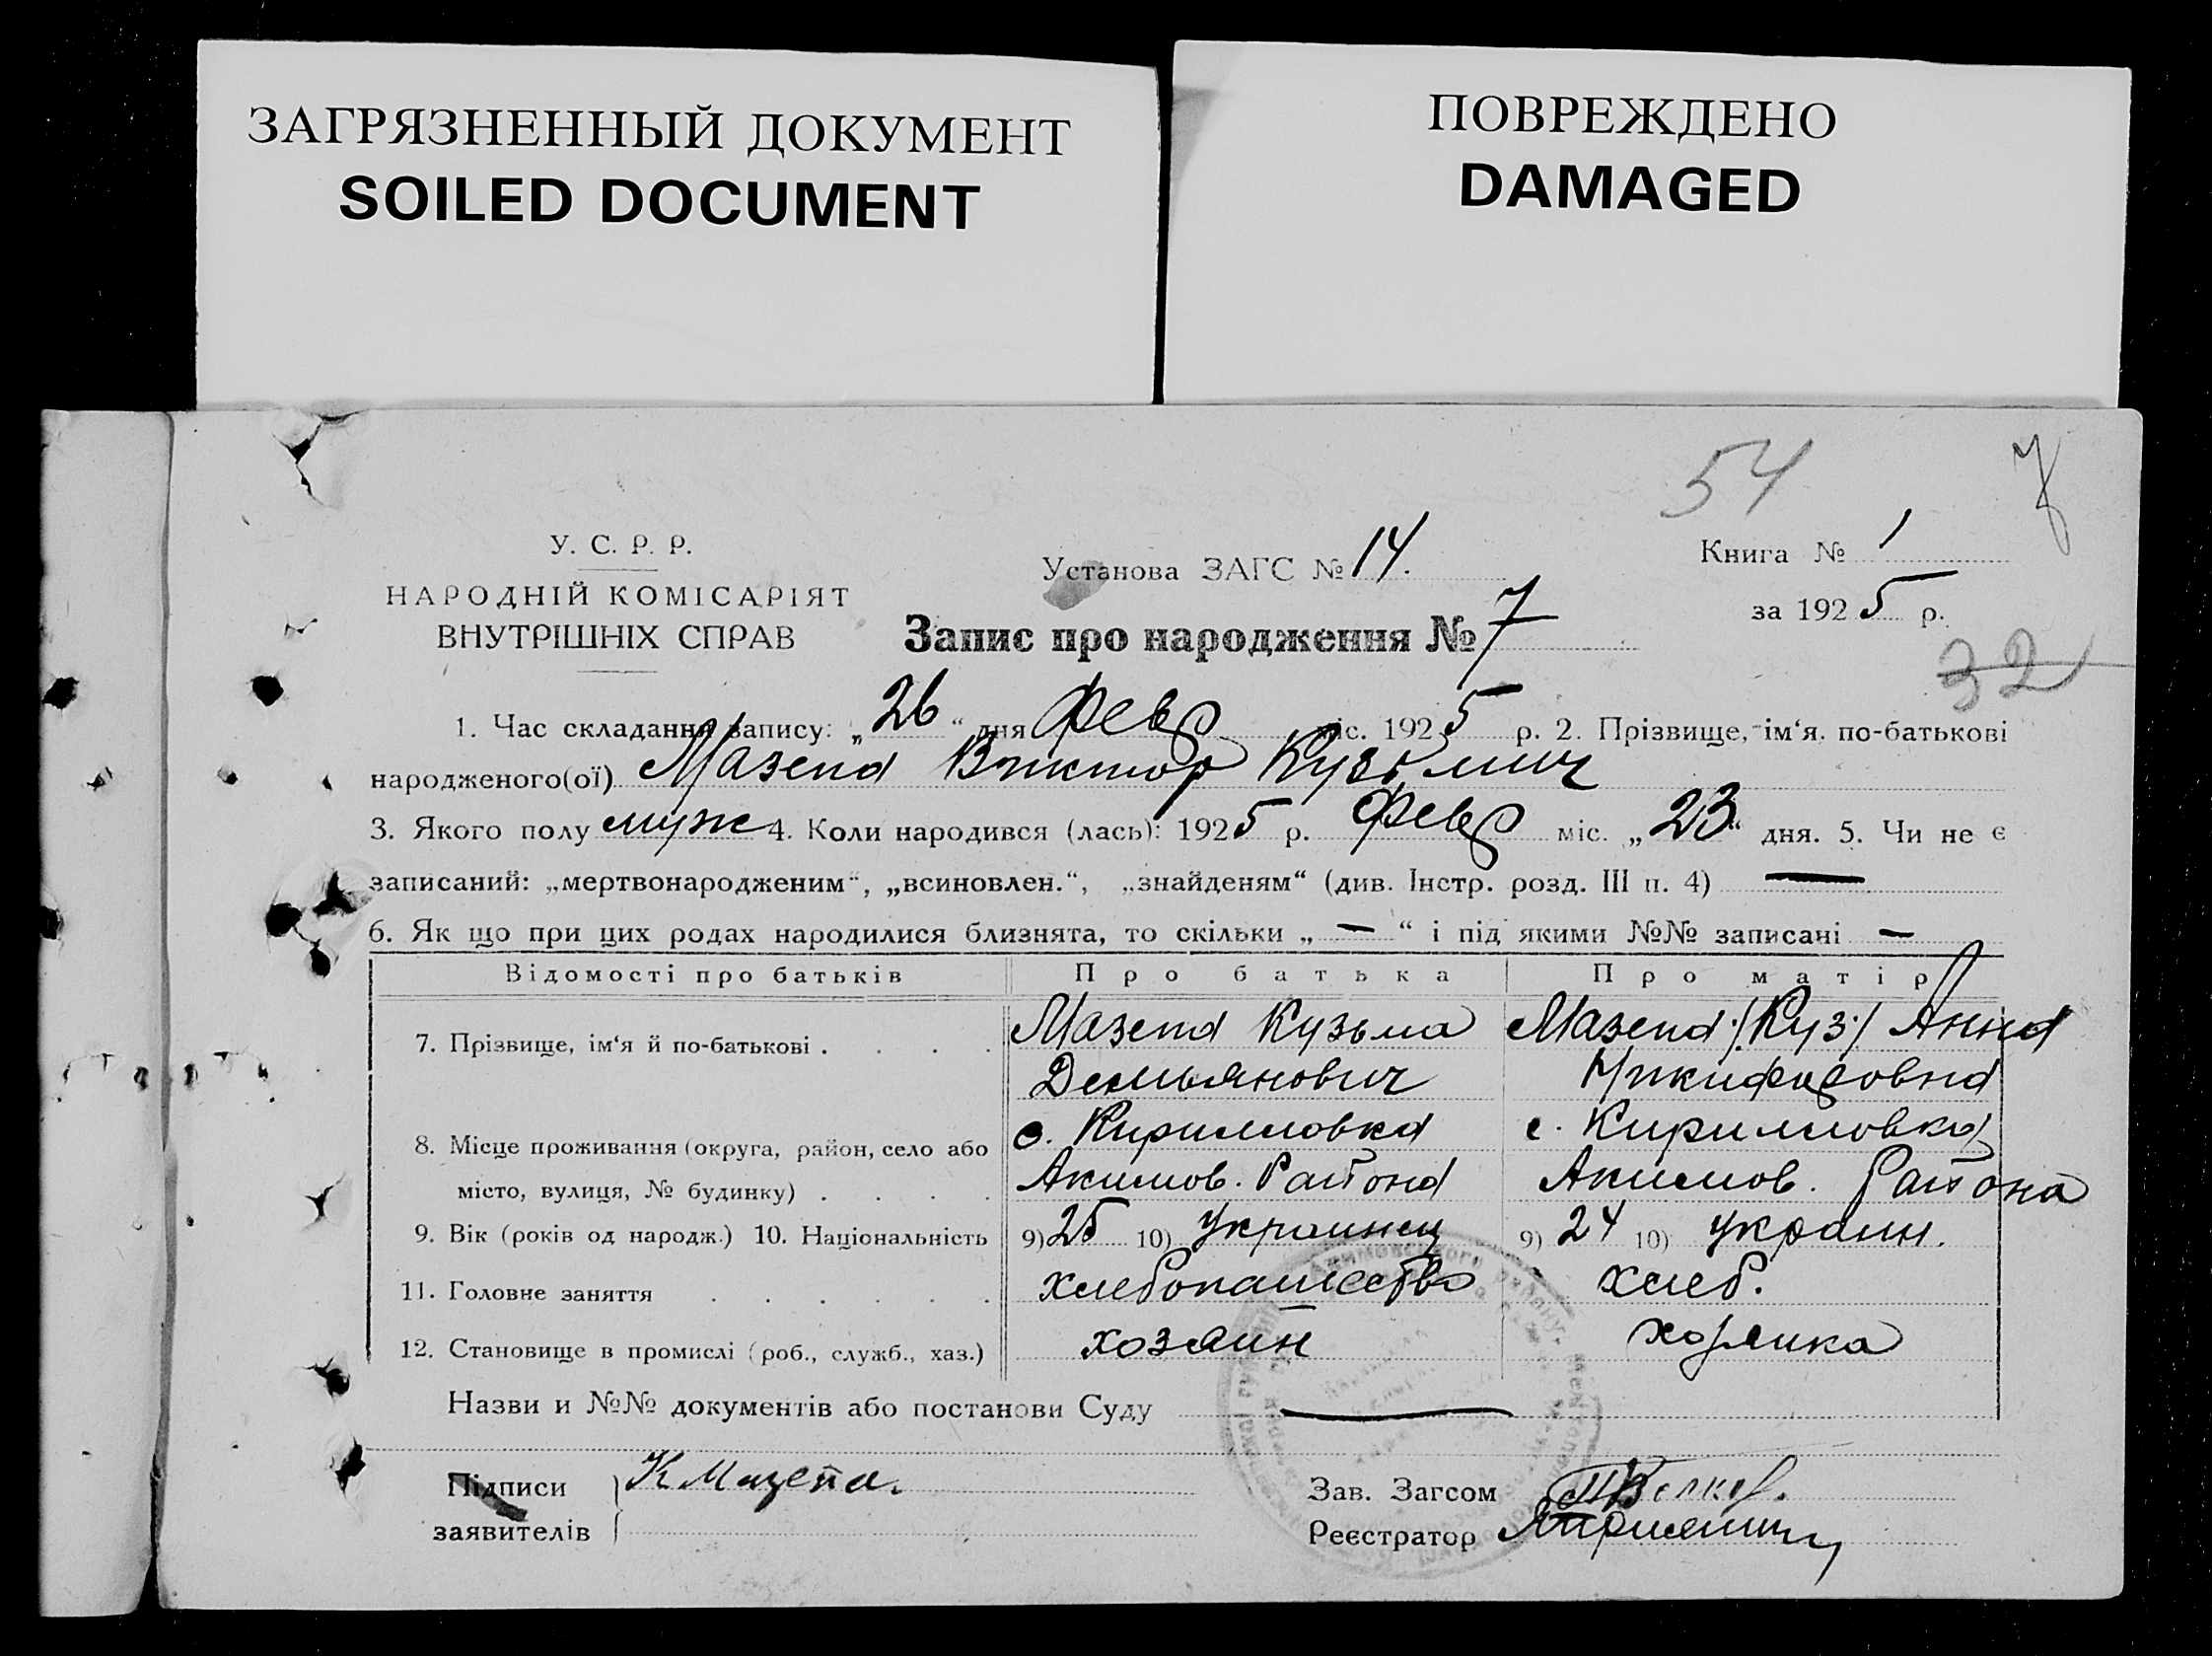 ЗАГРЯЗНЕННЫЙ ДОКУМЕНТ
SOILED DOCUMENT
ПОВРЕЖДЕНО
DAMAGED
54 7
У. С. Р. Р.
НАРОДНІЙ КОМІСАРІЯТ
ВНУТРІШНІХ СПРАВ
Установа ЗАГС № 14.
Запис про народження № 7
Книга № 1
за 1925 р.
32
1. Час складання запису: „26“ дня Февр міс. 1925 р. 2. Прізвище, ім‘я. по-батькові
народженого(ої) Мазепа Виктор Кузьмич
3. Якого полу муж 4. Коли народився (лась): 1925 р. Февр міс. „23“ дня. 5. Чи не є
записаний: „мертвонародженим“, „всиновлен.“, „знайденям“ (див. Інстр. розд. III п. 4) —
6. Як що при цих родах народилися близнята, то скільки „ — “ і під якими №№ записані —
Відомості про батьків Про батька Про матір
7. Прізвище, ім‘я й по-батькові . . . . Мазепа Кузьма Мазепа /Куз./ Анна
Демьянович Никифоровна
8. Місце проживання (округа, район, село або с. Кирилловка с. Кирилловка
місто, вулиця, № будинку) . . . . Акимов. Района Акимов. Района
9. Вік (років од народж.) 10. Національність 9) 25 10) Украинец 9) 24 10) Украин.
11. Головне заняття . . . . . . хлебопашество хлеб.
12. Становище в промислі (роб., служб., хаз.) хозяин хозяика
Назви и №№ документів або постанови Суду —
Підписи К Мазепа.
заявителів
Зав. Загсом
Реєстратор